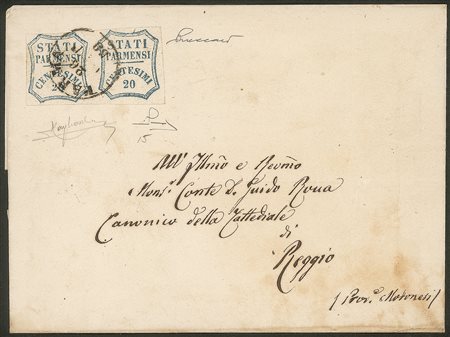 STATI
PARMENSI
CENTESIMI
20
STATI
PARMENSI
CENTESIMI
20
All' Illmo e Revmo
Monsr. Conte D. Guido Rocca
Canonico della Cattedrale
di
Reggio